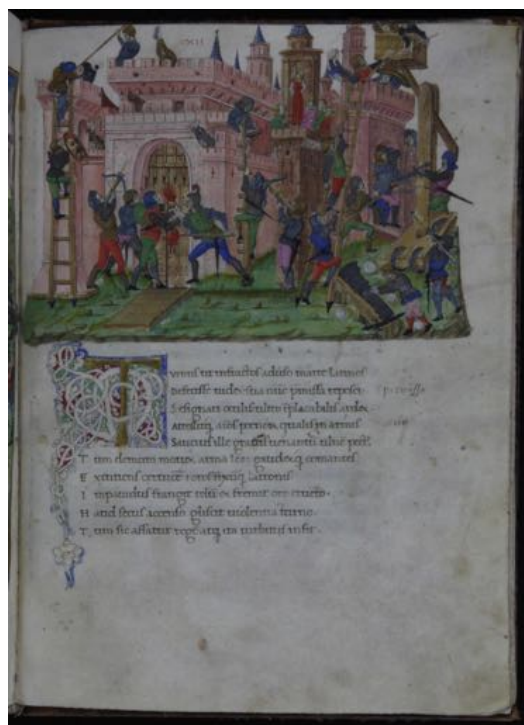 XII
Turnus ut infractos aduerso marte latinos
Defecisse uidet. sua nunc promissa reposci
Se signari oculis. ultro ĩplacabilis ardet
Attollitq; aĩos. qualis in aruis
Saucius ille graui uenantũ pect⁹
Tum demum mouet arma leo. gaudetq; comantes
Excutiens ceruice toros. fixũq; latronis
Impauidus frangit telũ et fremit ore cruẽto.
Haud secus accenso gliscit uiolentia turno.
Tum sic affatur regẽ. atq; ita turbidus infit.